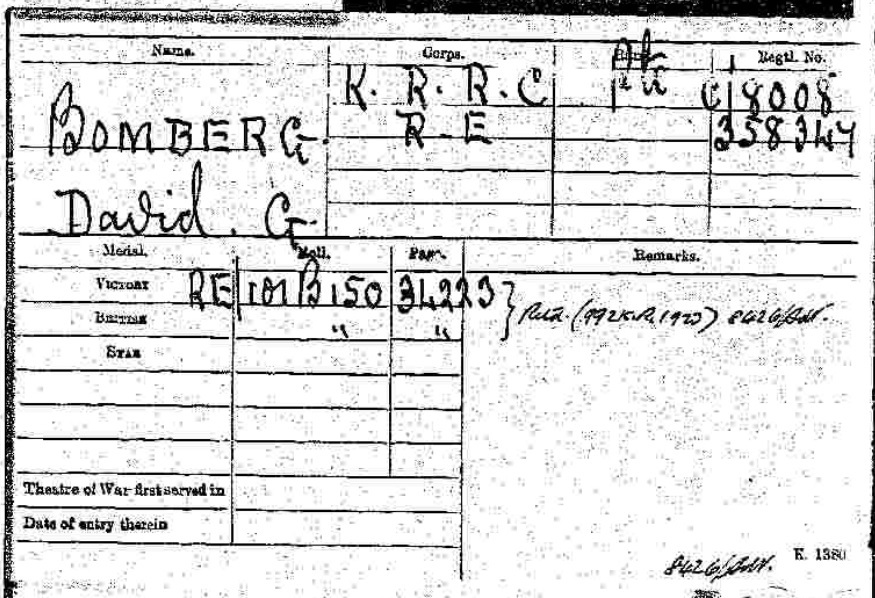 Name. Corps. Rank. Regtl. No.
BOMBERG. K. R. R. C Pte C/18008
R. E 358344
David. G.
Medal. Roll. Page. Remarks.
VICTORY RE/101B150 34223
BRITISH " " } (992 K.R. 1920) 8426/Adt.
STAR
Theatre of War first served in
Date of entry therein
8426/Adt. K. 1380